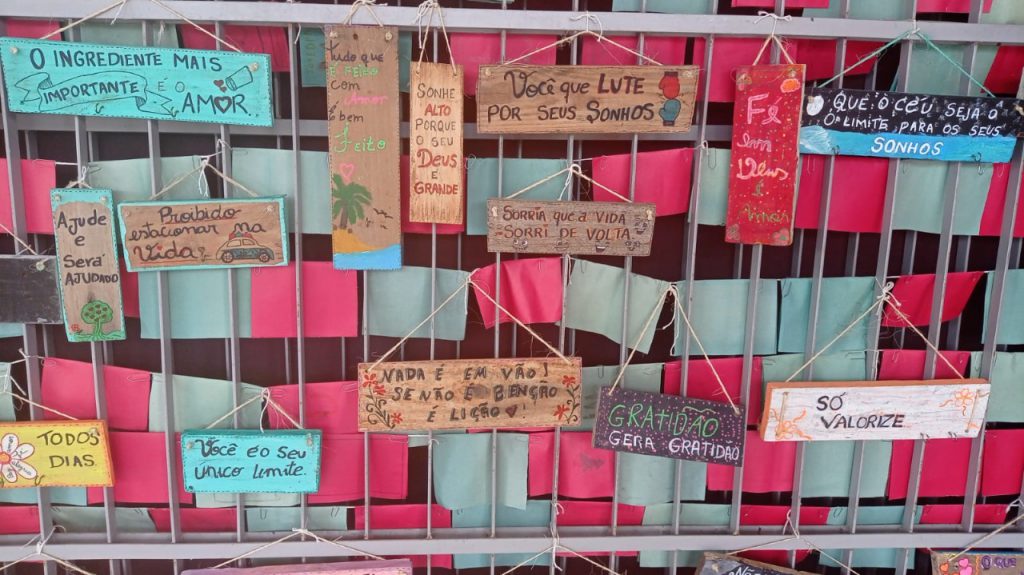 O INGREDIENTE MAIS
IMPORTANTE É O
AMOR
Tudo que
é FEITO
com
Amor
é bem
Feito
SONHE
ALTO
PORQUE
O SEU
Deus
E
GRANDE
Você que LUTE
POR SEUS SONHOS
Fé
em
Deus
é
Amois
QUE O CEU SEJA
O LIMITE PARA OS SEUS
SONHOS
Ajude
e
SERÁ
AJUDADO
PROIBIDO
estacionar na
Vida
SORRIA que a VIDA
SORRI DE VOLTA
NADA É EM VÃO!
SE NÃO É BENÇÃO
É LIÇÃO
GRATIDÃO
GERA GRATIDÃO
SÓ
VALORIZE
TODOS
DIAS.
Você É O SEU
UNICO LIMITE.
O QUE